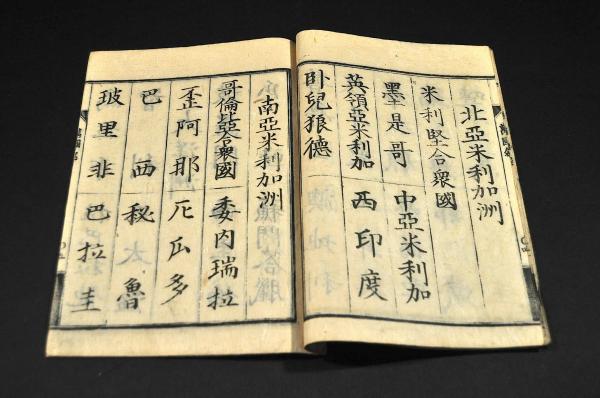 北亞米利加洲
米利堅合衆國
墨是哥 中亞米利加
英領亞米利加 西印度
臥兒狼德
南亞米利加洲
哥倫比亞合衆國 委內瑞拉
歪阿那 厄瓜多
巴西 秘魯
玻里非 巴拉圭